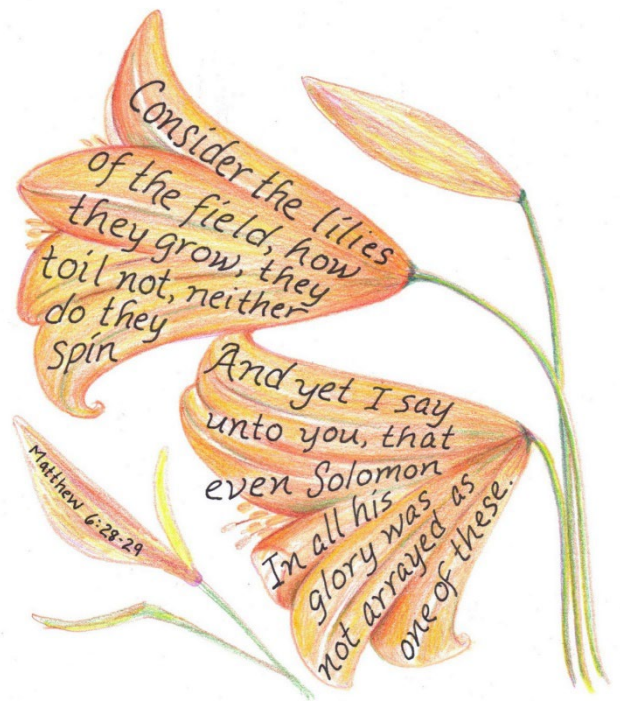 Consider the lilies
of the field, how
they grow, they
toil not, neither
do they
spin
And yet I say
unto you, that
even Solomon
In all his
glory was
not arrayed as
one of these.
Matthew 6:28-29